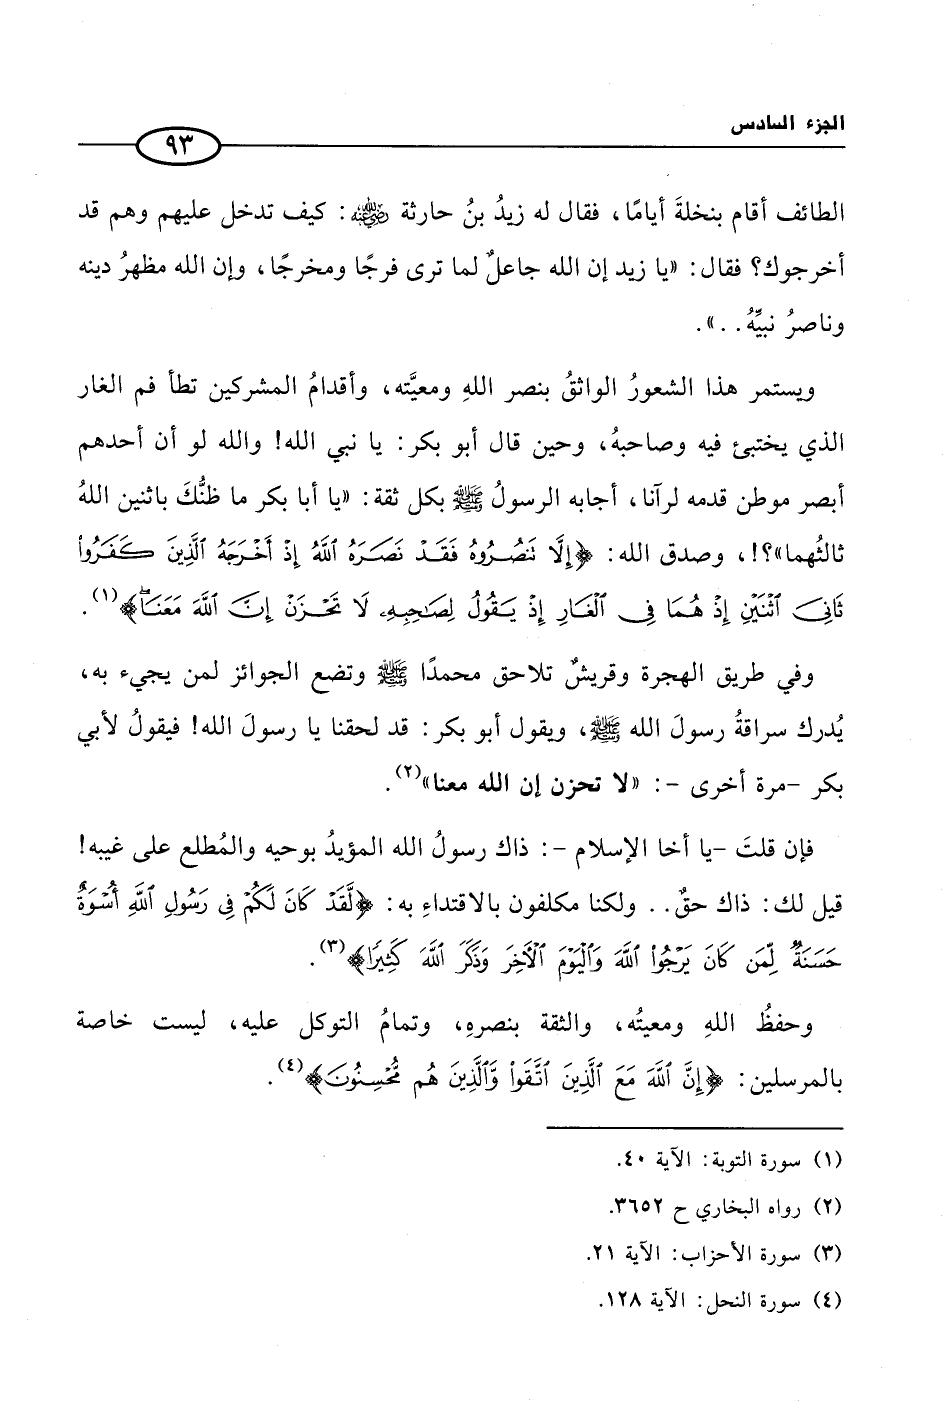 الجزء السادس
٩٣
الطائف أقام بنخلةَ أيامًا، فقال له زيدُ بنُ حارثة رضي الله عنه: كيف تدخل عليهم وهم قد
أخرجوك؟ فقال: «يا زيد إن الله جاعلٌ لما ترى فرجًا ومخرجًا، وإن الله مظهرُ دينه
وناصرُ نبيِّهُ..».
ويستمر هذا الشعورُ الواثقُ بنصر اللهِ ومعيَّته، وأقدامُ المشركين تطأ فم الغار
الذي يختبئ فيه وصاحبهُ، وحين قال أبو بكر: يا نبي الله! والله لو أن أحدهم
أبصر موطن قدمه لرآنا، أجابه الرسولُ ﷺ بكل ثقة: «يا أبا بكر ما ظنُّكَ باثنين اللهُ
ثالثُهما»؟!، وصدق الله: ﴿إِلَّا تَنصُرُوهُ فَقَدْ نَصَرَهُ ٱللَّهُ إِذْ أَخْرَجَهُ ٱلَّذِينَ كَفَرُوا۟
ثَانِىَ ٱثْنَيْنِ إِذْ هُمَا فِى ٱلْغَارِ إِذْ يَقُولُ لِصَـٰحِبِهِۦ لَا تَحْزَنْ إِنَّ ٱللَّهَ مَعَنَا ۖ﴾(١).
وفي طريق الهجرة وقريشٌ تلاحق محمدًا ﷺ وتضع الجوائز لمن يجيء به،
يُدرك سراقةُ رسولَ الله ﷺ، ويقول أبو بكر: قد لحقنا يا رسولَ الله! فيقولُ لأبي
بكر -مرة أخرى -: «لا تحزن إن الله معنا»(٢).
فإن قلتَ -يا أخا الإسلام -: ذاك رسولُ الله المؤيدُ بوحيه والمُطلع على غيبه!
قيل لك: ذاك حقٌ.. ولكنا مكلفون بالاقتداءِ به: ﴿لَّقَدْ كَانَ لَكُمْ فِى رَسُولِ ٱللَّهِ أُسْوَةٌ
حَسَنَةٌ لِّمَن كَانَ يَرْجُوا۟ ٱللَّهَ وَٱلْيَوْمَ ٱلْـَٔاخِرَ وَذَكَرَ ٱللَّهَ كَثِيرًا﴾(٣).
وحفظُ اللهِ ومعيتُه، والثقة بنصرهِ، وتمامُ التوكل عليه، ليست خاصة
بالمرسلين: ﴿إِنَّ ٱللَّهَ مَعَ ٱلَّذِينَ ٱتَّقَوا۟ وَّٱلَّذِينَ هُم مُّحْسِنُونَ﴾(٤).
(١) سورة التوبة: الآية ٤٠.
(٢) رواه البخاري ح ٣٦٥٢.
(٣) سورة الأحزاب: الآية ٢١.
(٤) سورة النحل: الآية ١٢٨.